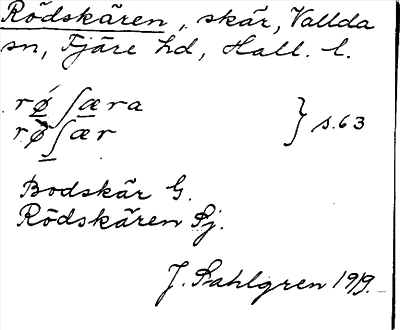 Rödskären, skär, Vallda
sn, Fjäre hd, Hall. l.
rø̱ʃæ̱ra
rø̱ʃær } s. 63
Bodskär G.
Rödskären Sj.
J. Sahlgren 1919.